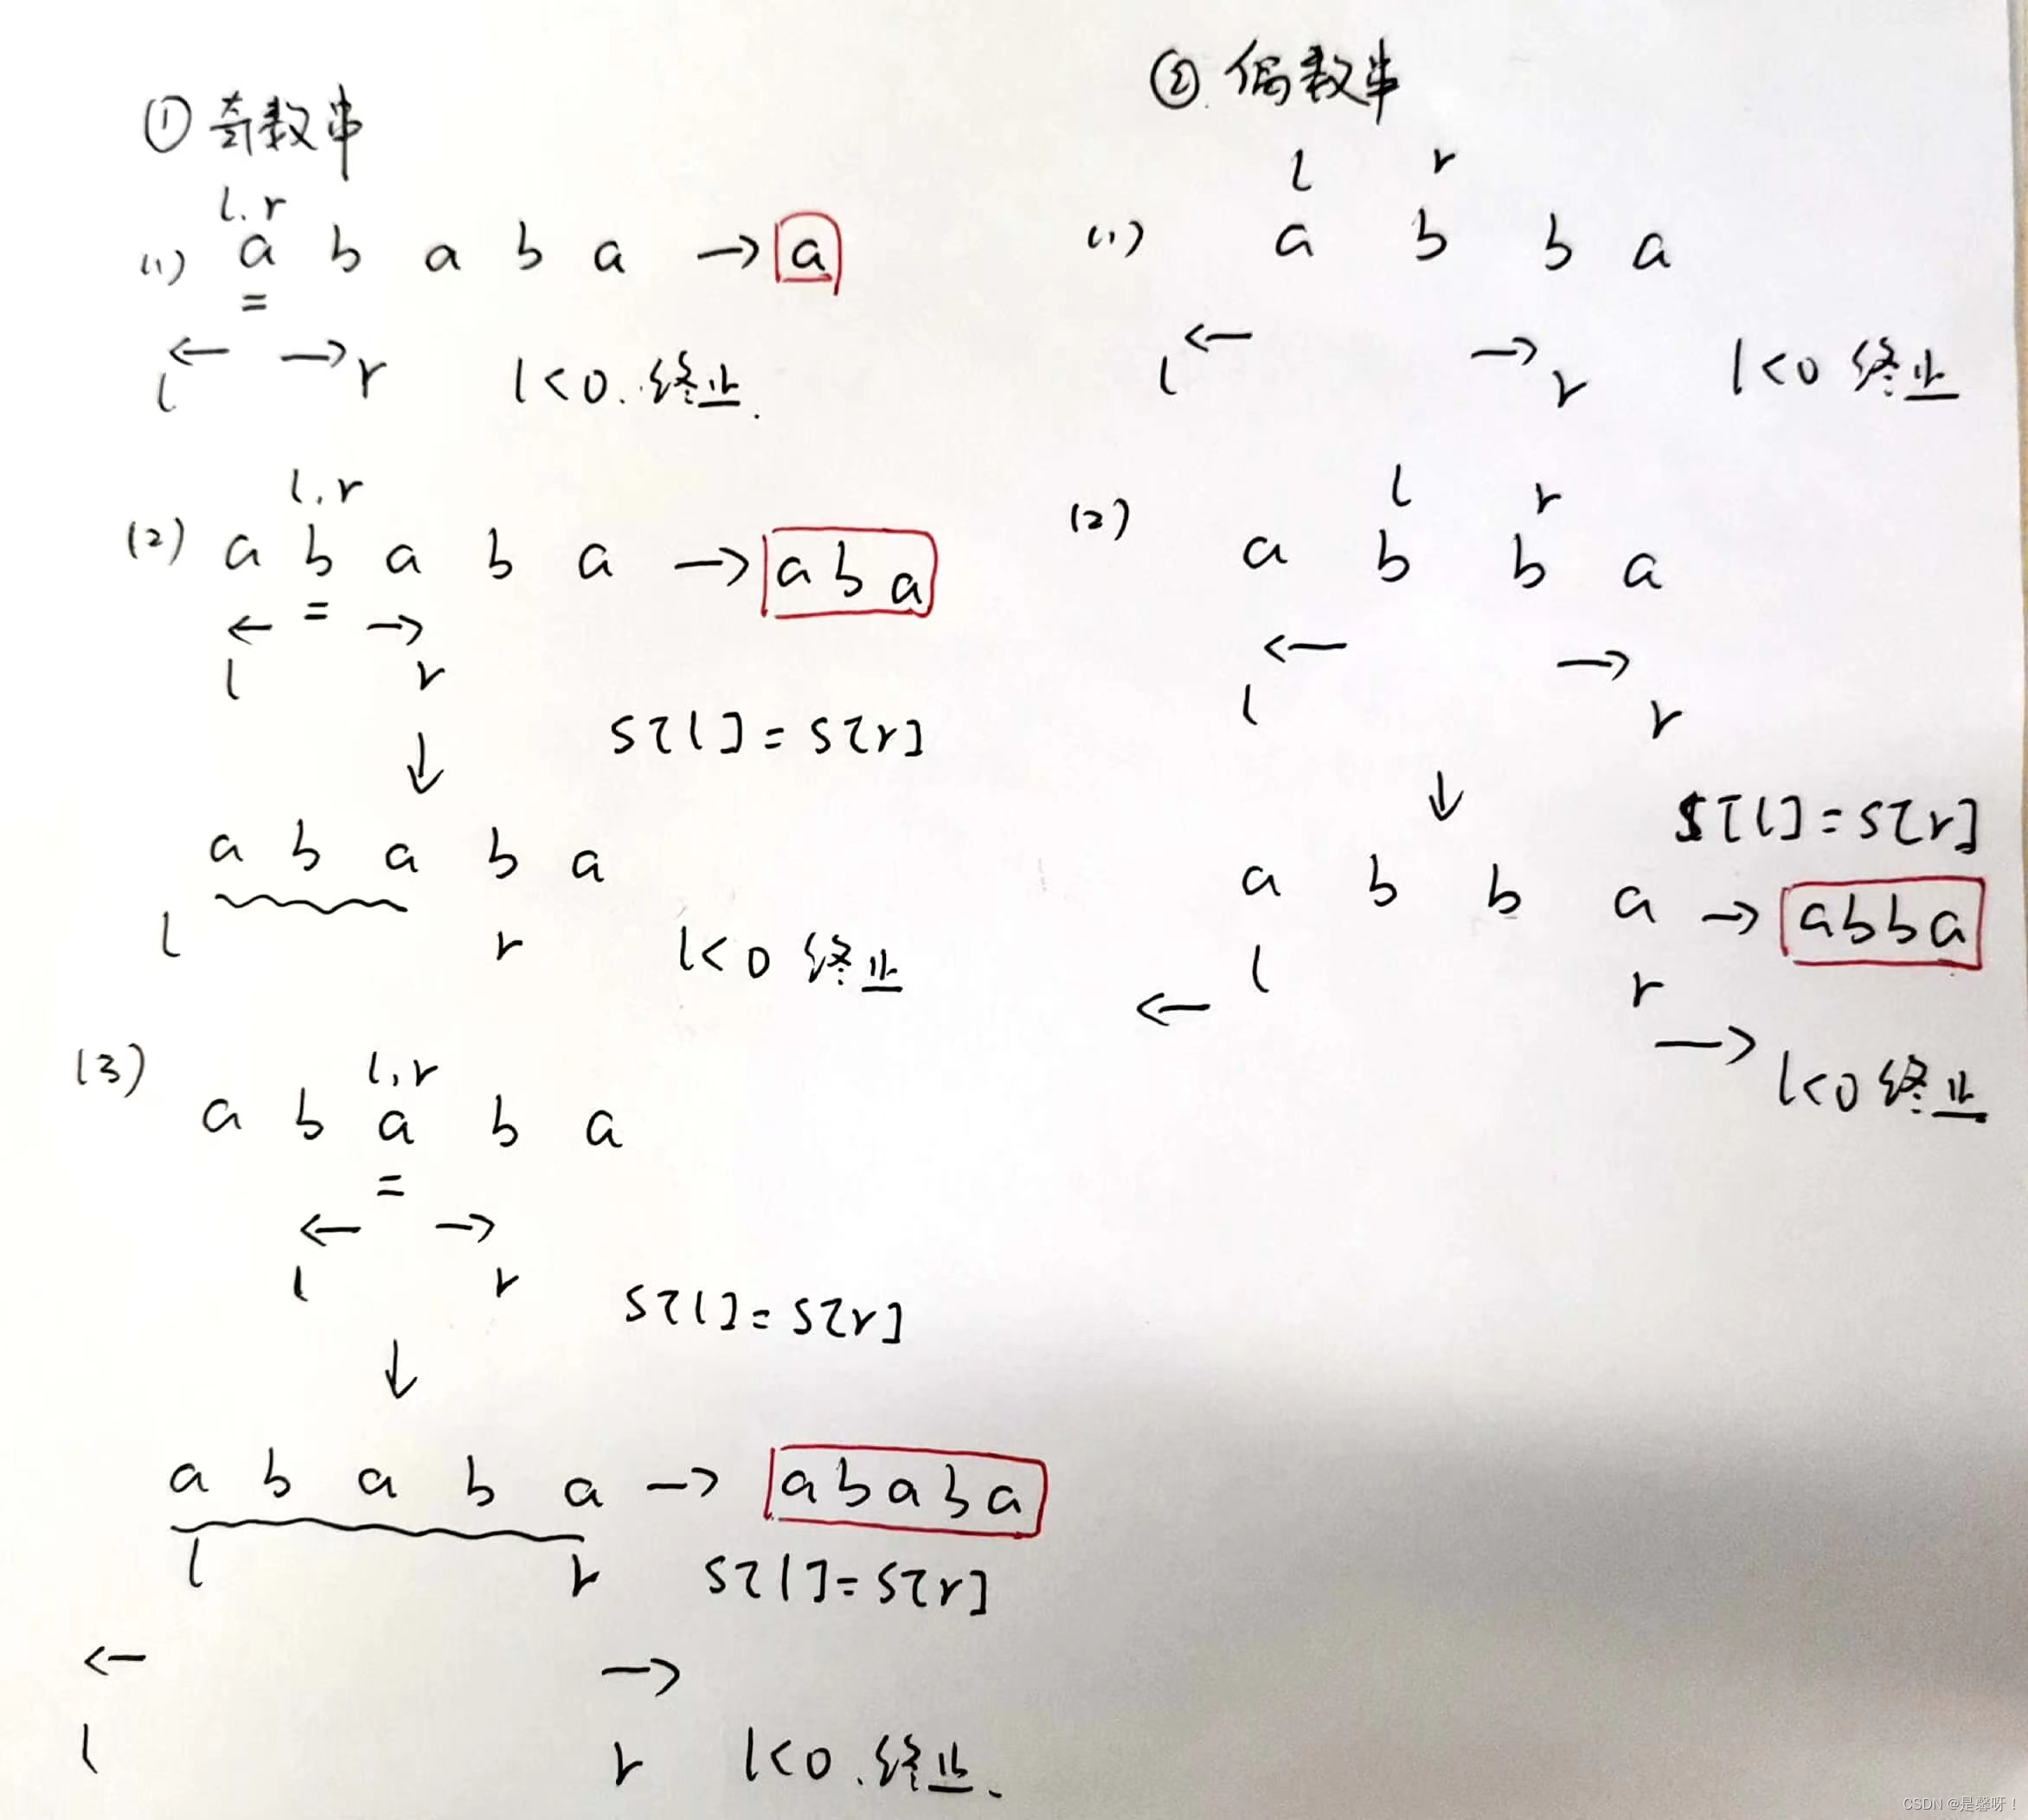 ① 奇数串
l.r
(1) a b a b a → a
=
← →
l r l<0.终止.
l,r
(2) a b a b a → a b a
=
← →
l r
s[l]=s[r]
↓
a b a b a
l r l<0 终止
(3) l,r
a b a b a
=
← →
l r
s[l]=s[r]
↓
a b a b a → a b a b a
l r s[l]=s[r]
← →
l r l<0.终止.
② 偶数串
l r
(1) a b b a
← →
l r l<0 终止
l r
(2) a b b a
← →
l r
↓
s[l]=s[r]
a b b a → abba
l r
← →
l<0 终止
CSDN @是馨呀！